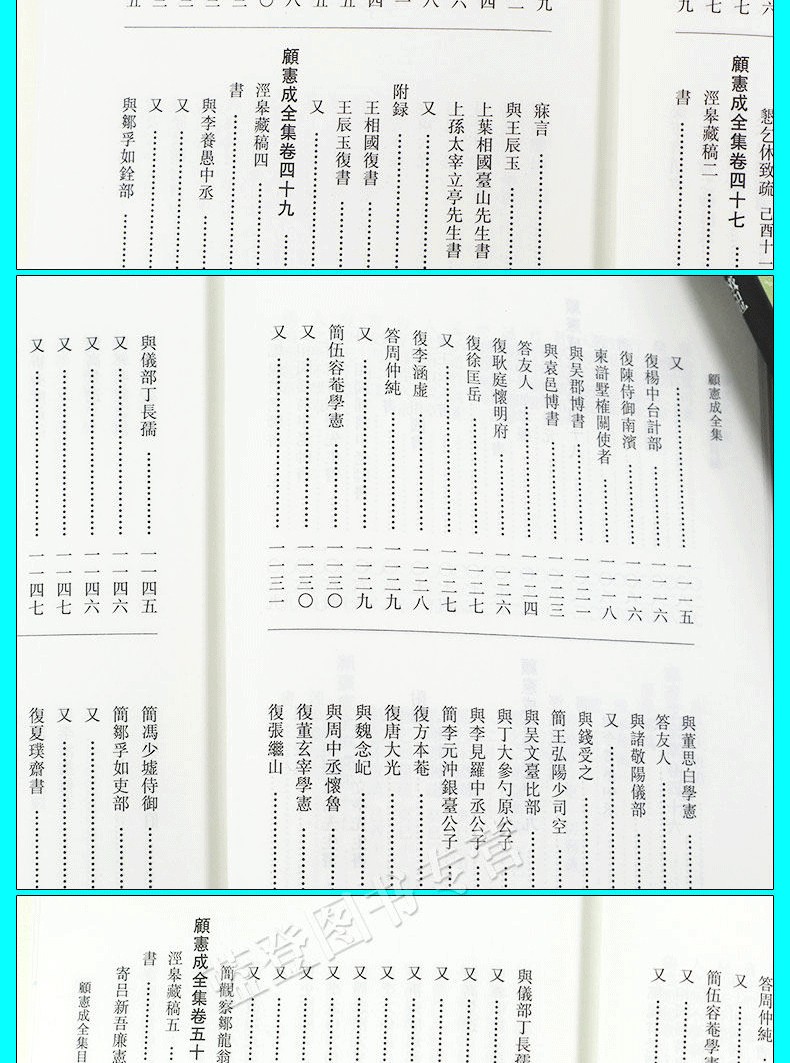 懇乞休致疏 己酉十一
顧憲成全集卷四十七
涇皋藏稿二
書
寐言
與王辰玉
上葉相國臺山先生書
上孫太宰立亭先生書
又
附録
王相國復書
王辰玉復書
又
顧憲成全集卷四十九
涇皋藏稿四
書
與李養愚中丞
又
又
與鄒孚如銓部
顧憲成全集
又 一一一五
復楊中台計部 一一一六
復陳侍御南濱 一一一六
柬滸墅榷關使者 一一一八
與吳郡博書 一一二一
與袁邑博書 一一二三
答友人 一一二四
復耿庭懷明府 一一二六
復徐匡岳 一一二七
又 一一二七
復李涵虛 一一二八
答周仲純 一一二九
又 一一二九
簡伍容菴學憲 一一三〇
又 一一三〇
又 一一三一
與董思白學憲
答友人
與諸敬陽儀部
又
與錢受之
簡王弘陽少司空
與吳文臺比部
與丁大參勺原公子
與李見羅中丞公子
簡李元沖銀臺公子
復方本菴
復唐大光
與魏念屺
與周中丞懷魯
復董玄宰學憲
復張繼山
與儀部丁長孺 一一四五
又 一一四六
又 一一四六
又 一一四七
又 一一四七
簡馮少墟侍御
簡鄒孚如吏部
又
又
復夏璞齋書
答周仲純
又
簡伍容菴學憲
又
又
與儀部丁長孺
又
又
又
又
又
又
又
又
又
又
簡觀察鄒龍翁
顧憲成全集卷五十
涇皋藏稿五
書
寄吕新吾廉憲
顧憲成全集目
藍登图书专营